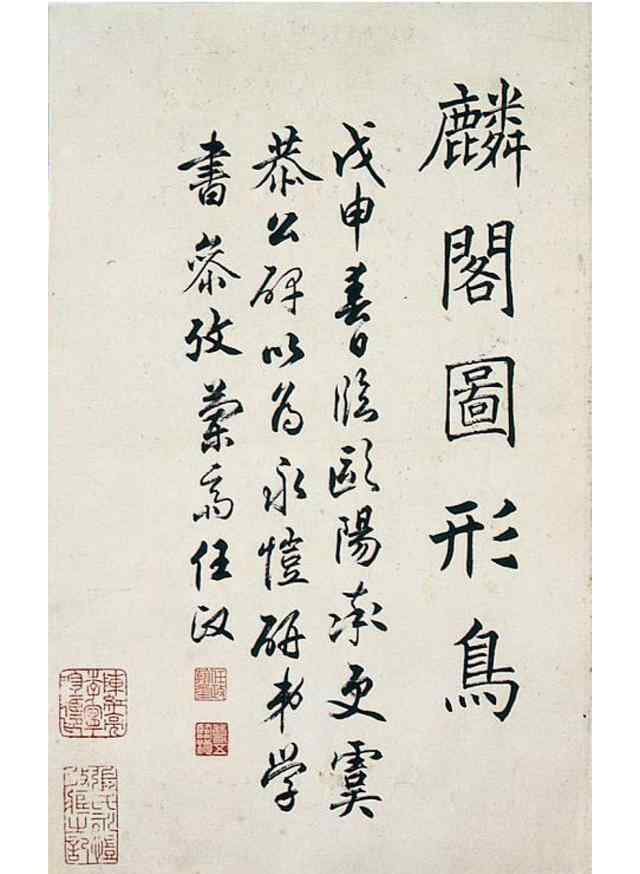 麟閣圖形鳥
戊申春日臨歐陽率更虞
恭公碑以爲永愷研弟學
書參攷蘭齋任政